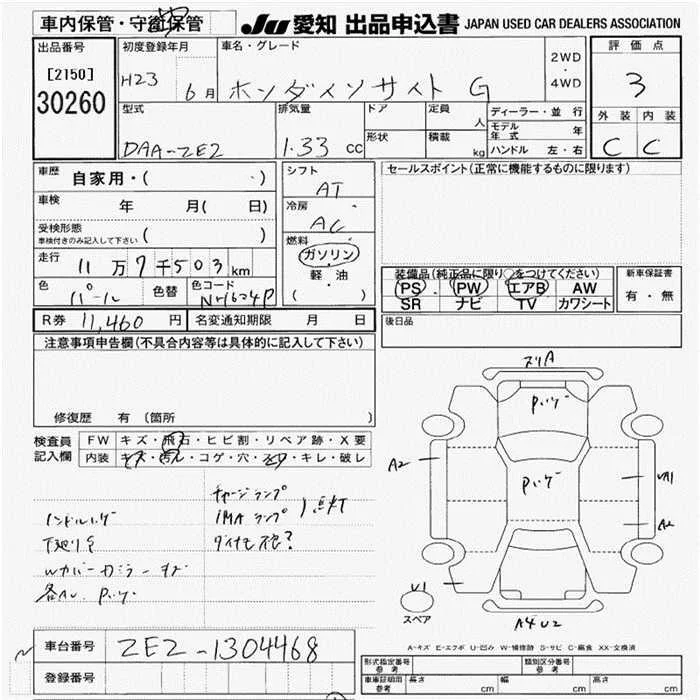 車内保管・守衛保管
JU 愛知 出品申込書 JAPAN USED CAR DEALERS ASSOCIATION
出品番号
[2150]
30260
初度登録年月
H23 6月
車名・グレード
ホンダインサイト G
2WD
・
4WD
評価点
3
外装 内装
C C
型式
DAA-ZE2
排気量
1.33 cc
ドア
形状
定員
人
積載
kg
ディーラー・並行
モデル年式 年
ハンドル 左・右
車歴 自家用・( ・)
車検 年 月( 日)
受検形態
車検付きのみ記入して下さい ( )
走行 11万7千503km
色 パール 色替 色コード NH624P
シフト
AT
冷房
AC
燃料
ガソリン
・
軽・油
( )
セールスポイント(正常に機能するものに限ります)
装備品(純正品に限り○をつけてください)
PS PW エアB AW
SR ナビ TV カワシート
新車保証書
有・無
R券 11,460 円 名変通知期限 月 日
後日品
注意事項申告欄(不具合内容等は具体的に記入して下さい)
修復歴 有(箇所 )
検査員
記入欄
FW キズ・飛石・ヒビ割・リペア跡・X要
内装 キズ・汚れ・コゲ・穴・キレ・破レ
ハンドルハゲ
下廻りサ
Wカバー カジラー キズ
各AU. Pハゲ
チャージランプ
IMAランプ 点灯
ダイナモ不良?
スリA
Pハゲ
A2
Pハゲ
A2
U1
スペア
A4 U2
A-キズ E-エクボ U-凹み W-補修跡 S-サビ C-腐食 XX-交換済
車台番号 ZE2-1304468
登録番号
形式指定番号 参考
類別区分番号 参考
車庫証明用 参考 長さ cm 幅 cm 高さ cm